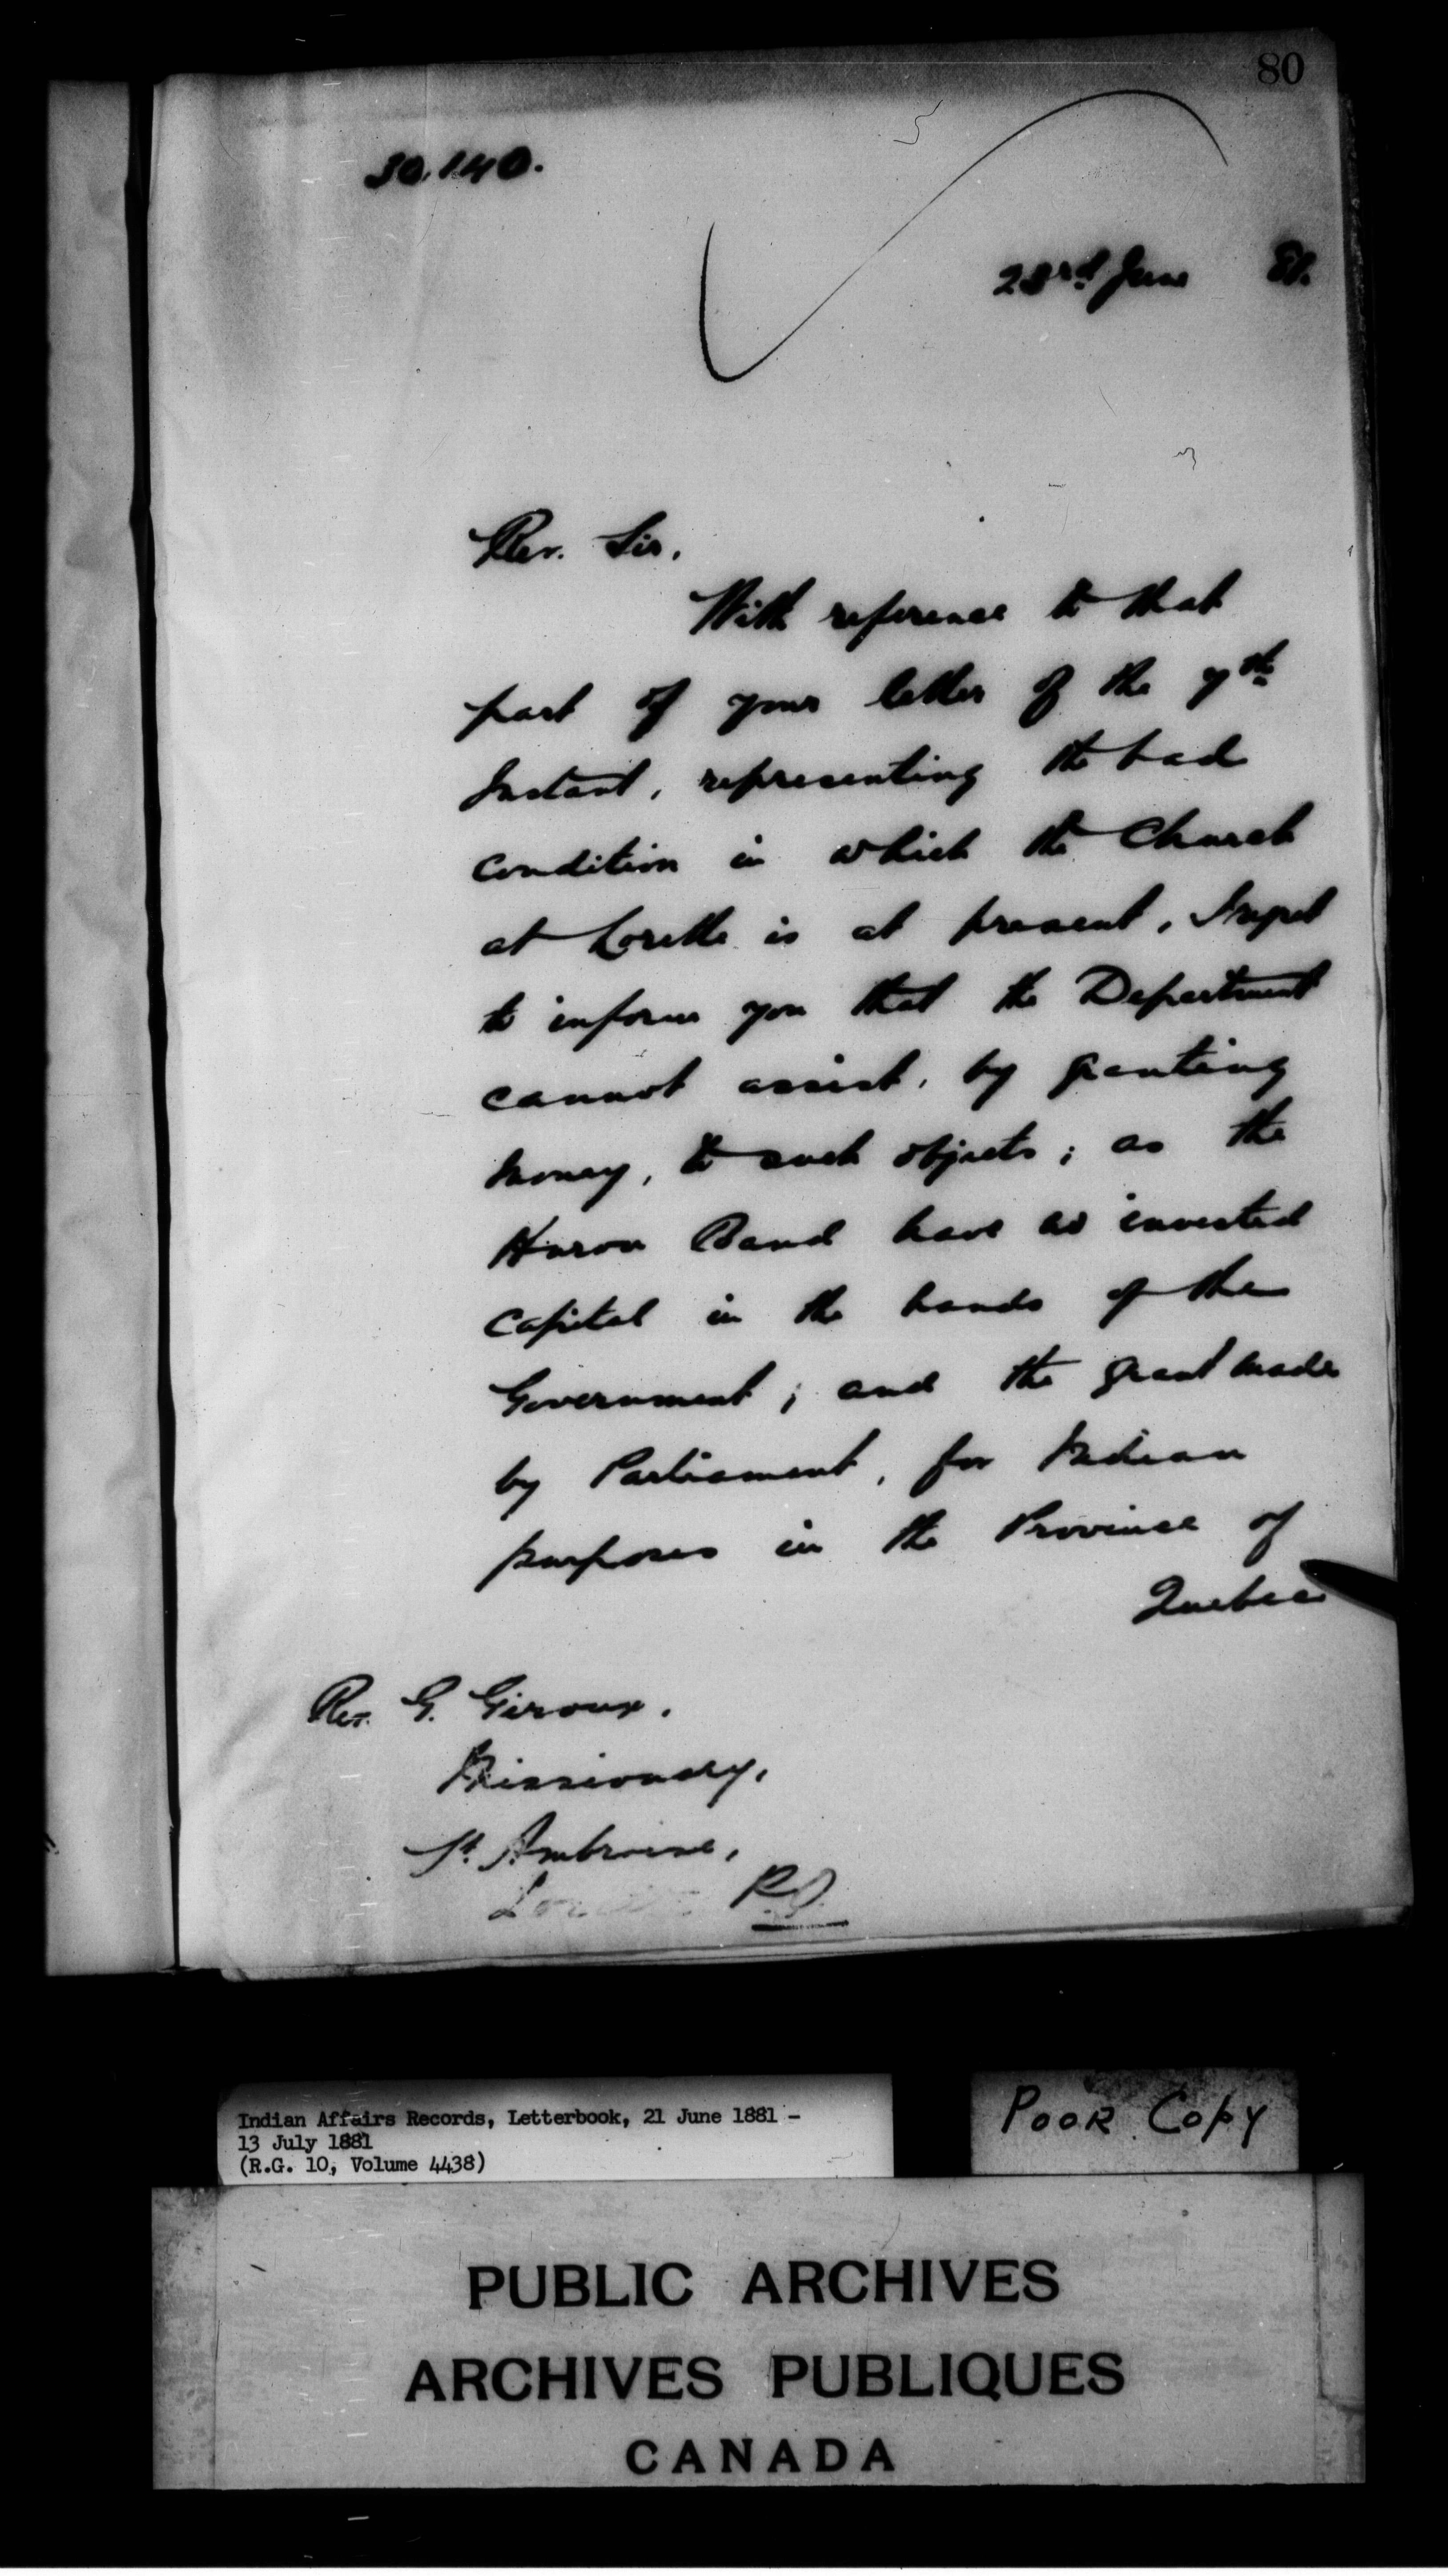 80
30,140.
23rd June 81.
Rev. Sir,
With reference to that
part of your letter of the 7th
Instant, representing the bad
condition in which the Church
at Lorette is at present, I regret
to inform you that the Department
cannot assist, by granting
money, to such objects; as the
Huron Band have no invested
capital in the hands of the
Government; and the grant made
by Parliament, for Indian
purposes in the Province of
Quebec
Rev. G. Giroux,
Missionary,
St. Ambroise,
Lorette P.Q.
Indian Affairs Records, Letterbook, 21 June 1881 -
13 July 1881
(R.G. 10, Volume 4438)
POOR COPY
PUBLIC ARCHIVES
ARCHIVES PUBLIQUES
CANADA